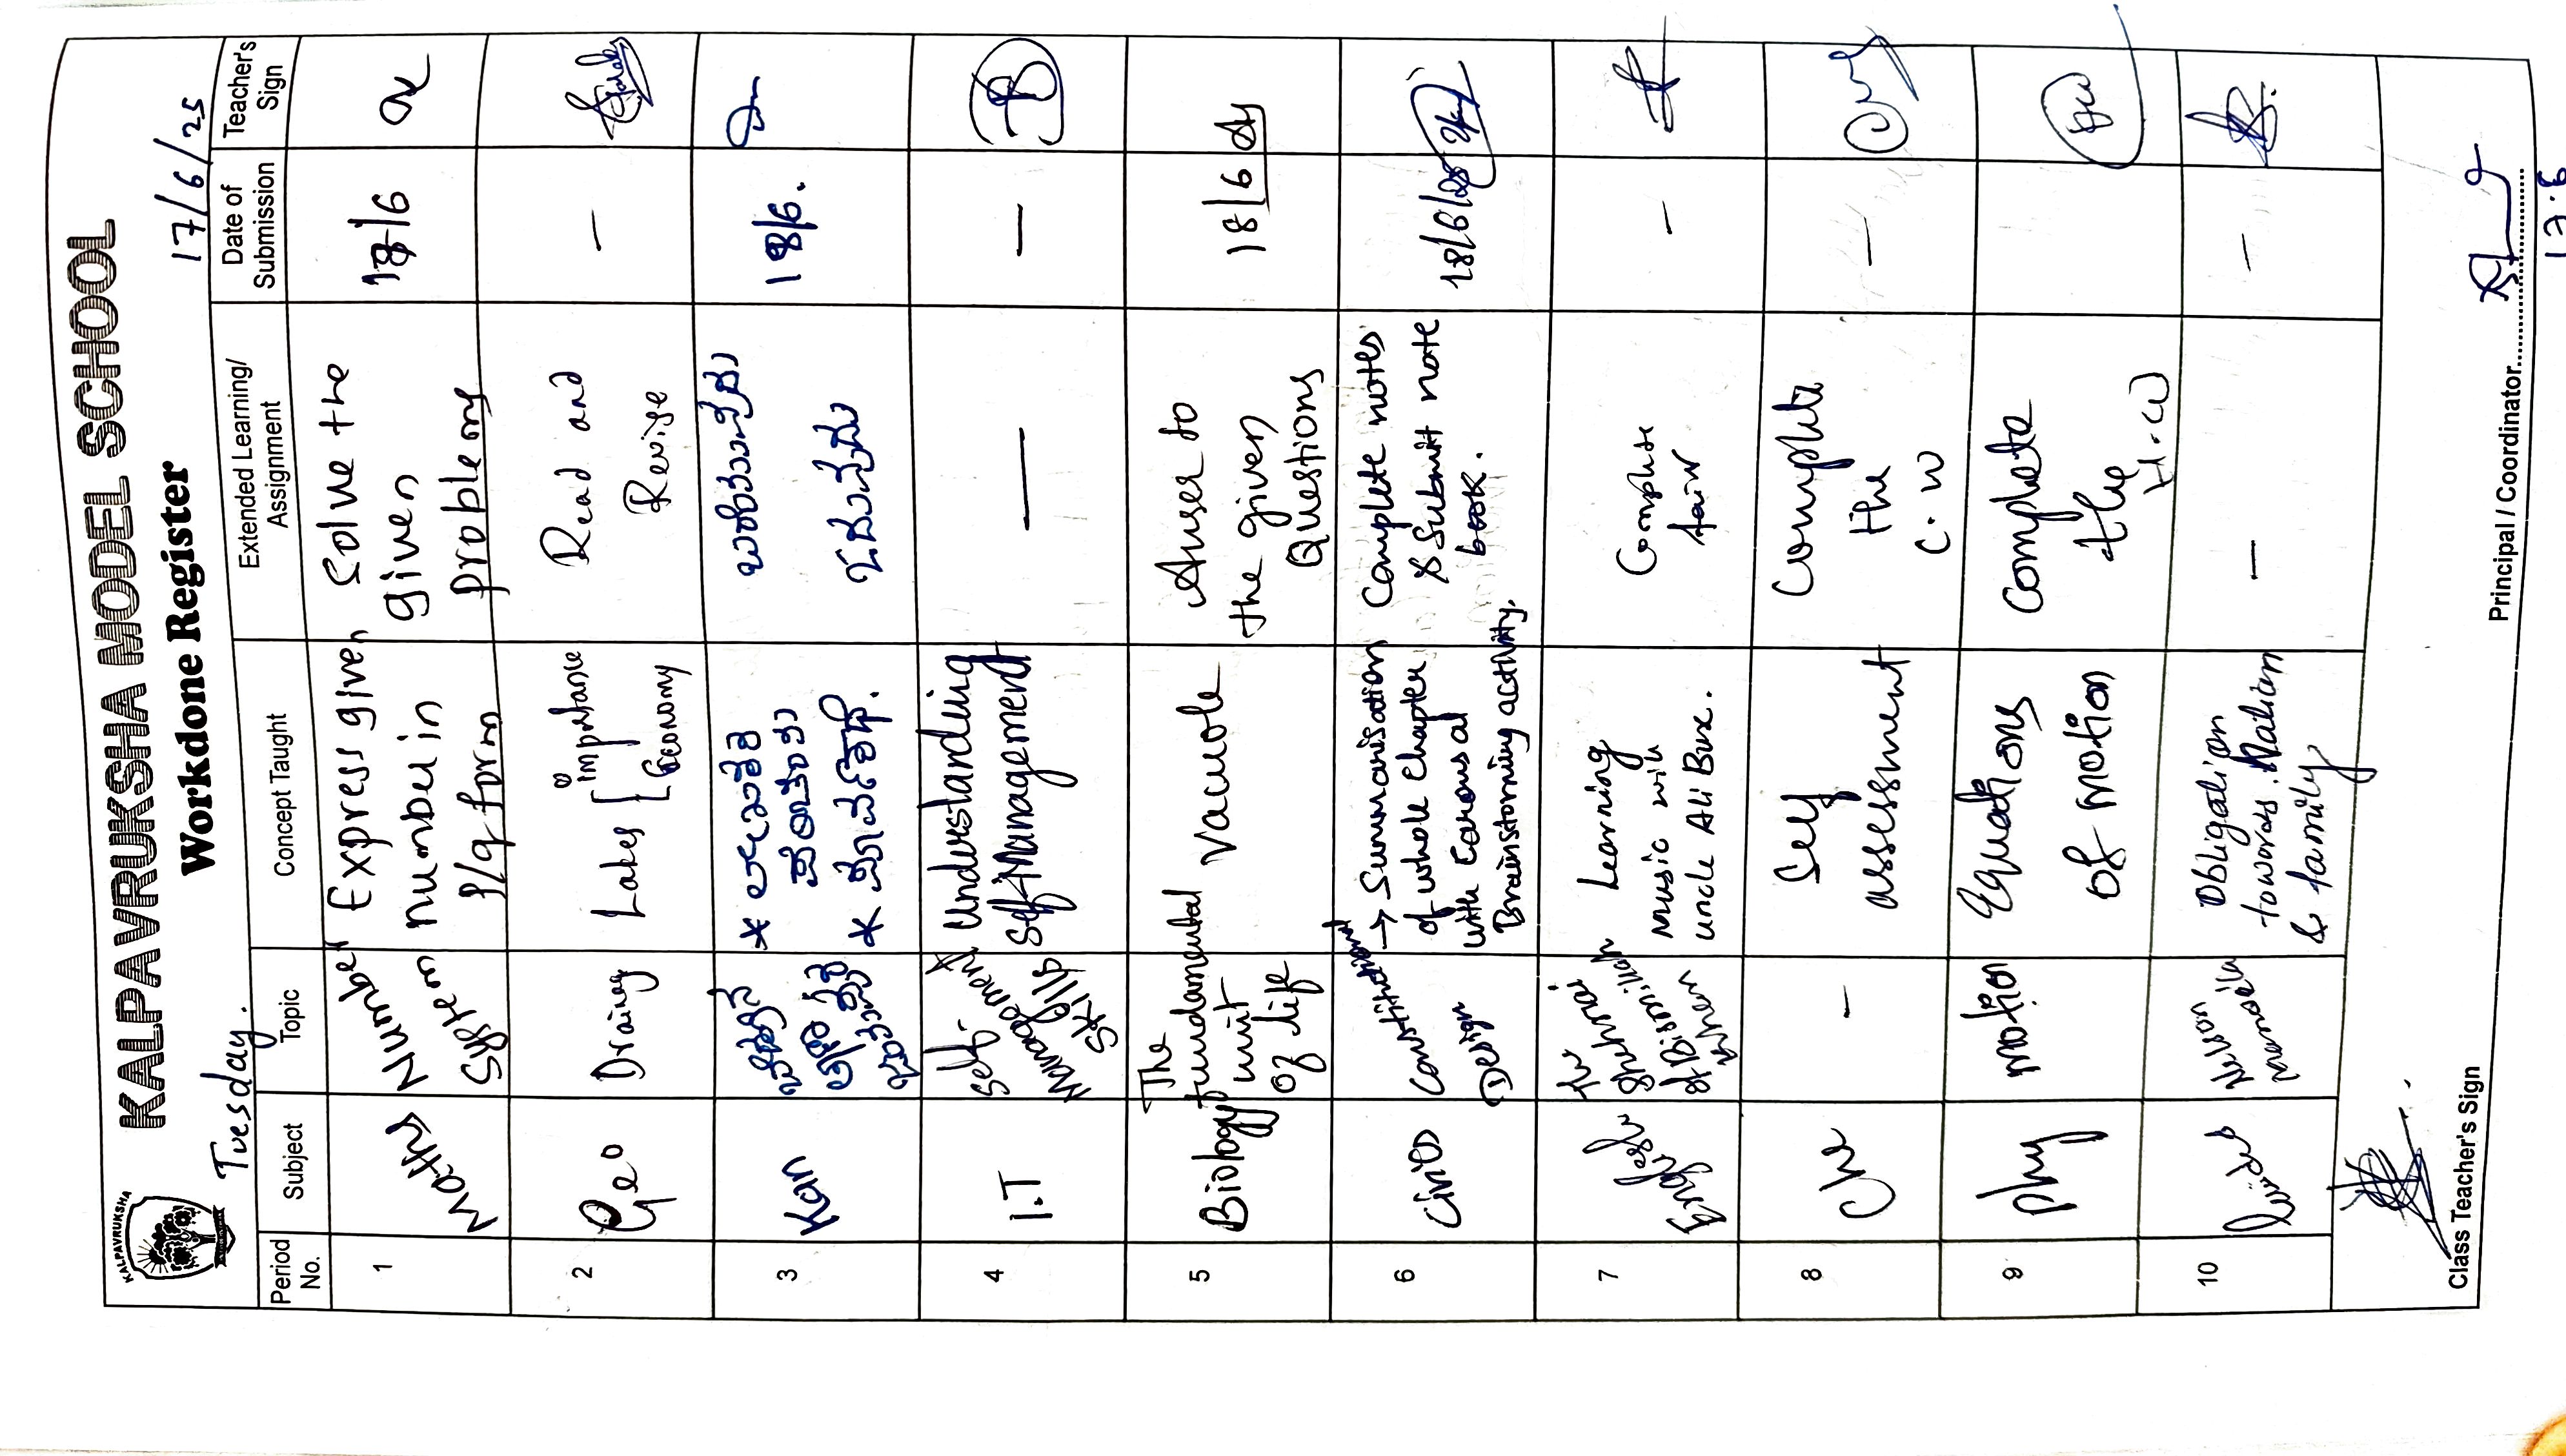 KALPAVRUKSHA
KALPAVRUKSHA MODEL SCHOOL
Workdone Register
Tuesday.
17/6/25
Period No.
Subject
Topic
Concept Taught
Extended Learning/ Assignment
Date of Submission
Teacher's Sign
1
Maths
Number
System
Express given
number in
p/q form
Solve the
given
problems
18/6
2
Geo
Drainage
Lakes
importance
Economy
Read and
Revise
—
3
Kan
18/6.
4
I.T
Self-
Management
Skills
Understanding
Self-Management
—
—
5
Biology
The
fundamental
unit
of life
Vacuole
Answer to
the given
Questions
18/6
6
Civics
Constitutional
Design
→ Summarisation
of whole chapter
with Carousal
Brainstorming activity.
Complete notes
& Submit note
book.
18/6/25
7
English
The
Shehnai
of Bismillah
Khan
Learning
music with
uncle Ali Bux.
Complete
fair
—
8
Che
—
Self
assessment
Complete
the
C.W
—
9
Phy
motion
Equations
of motion
Complete
the
H.W
10
Nelson
mandela
Obligation
towards Nation
& family
—
—
Class Teacher's Sign
Principal / Coordinator
17.6